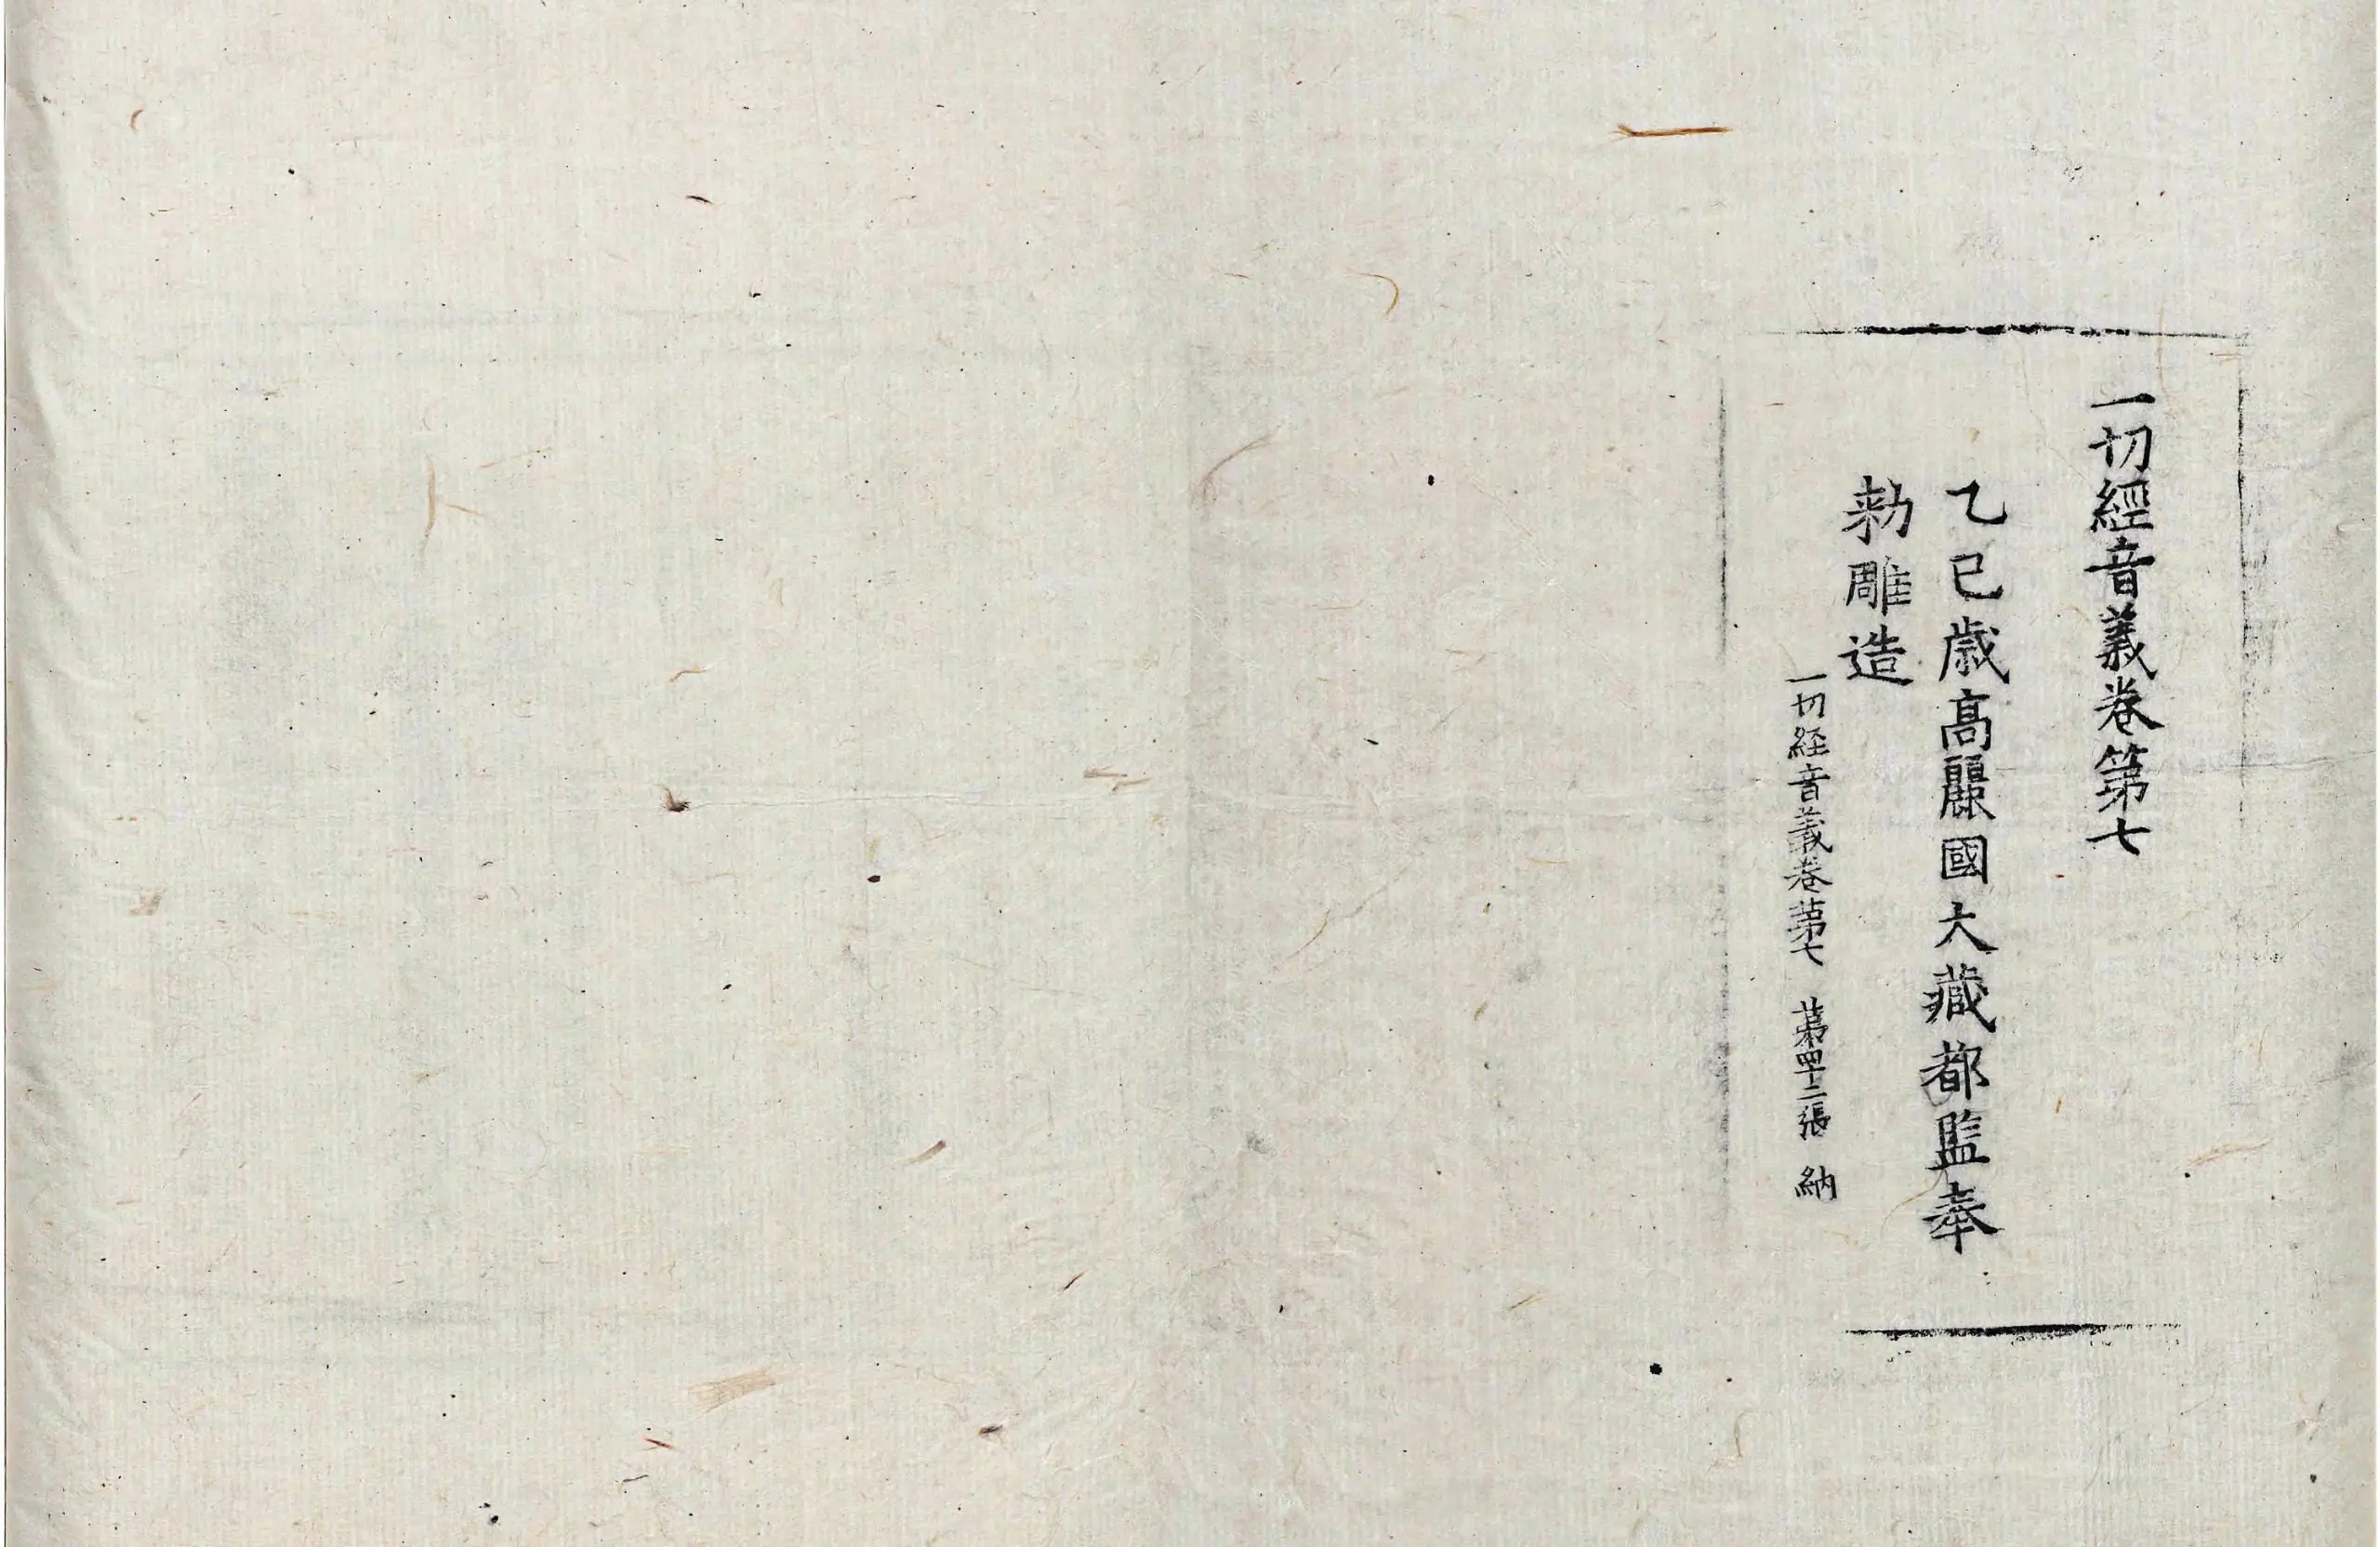 一切經音義卷第七
乙巳歲高麗國大藏都監奉
勑雕造
一切経音義卷苐七 苐四十二張 納